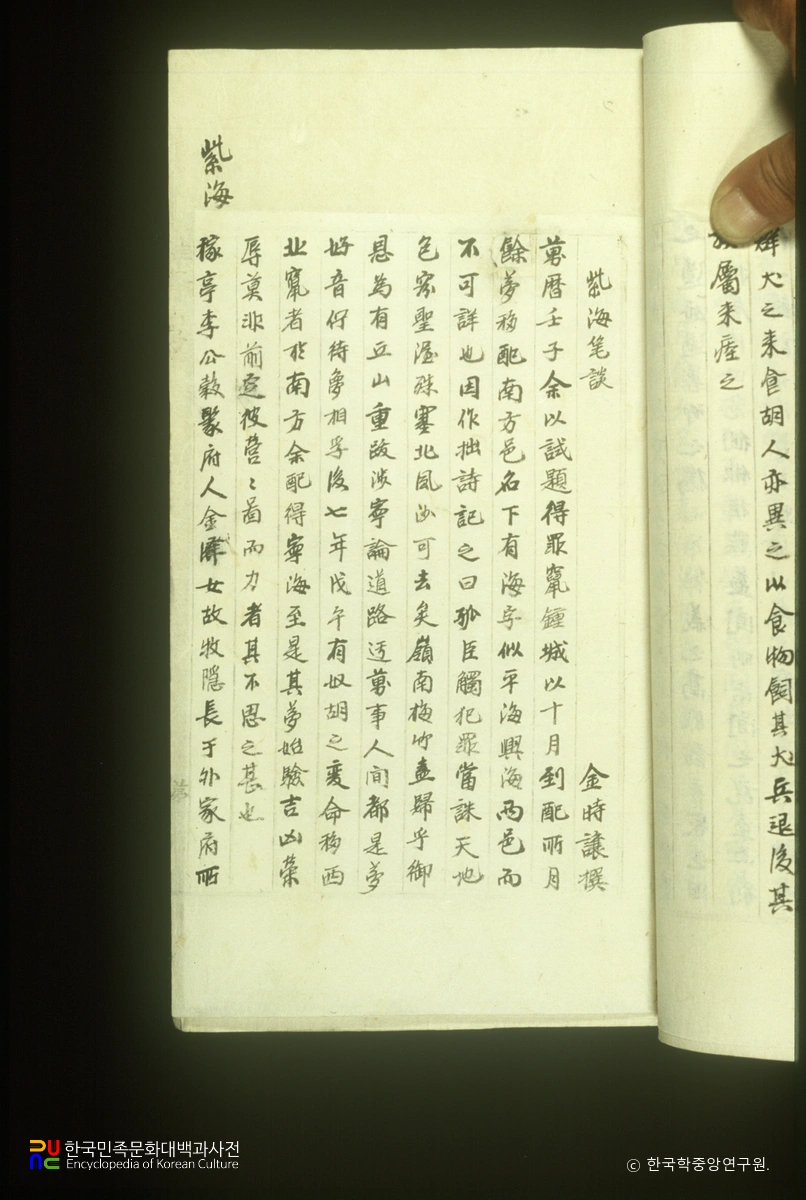 犬之来食胡人亦異之以食物飼其犬兵退後其
屬来瘞之
紫海笔談
金時讓撰
萬曆壬子余以試題得罪竄鍾城以十月到配所月
餘夢移配南方邑名下有海字似平海興海兩邑而
不可詳也因作拙詩記之曰孤臣觸犯罪當誅天地
包容聖渥殊塞北風沙可去矣嶺南梅竹盍歸乎御
恩為有丘山重跋涉寧論道路迂萬事人間都是夢
好音何待夢相孚後七年戊午有奴胡之變命移西
北竄者於南方余配得寧海至是其夢始驗吉凶榮
辱莫非前定彼營〻啚而力者其不思之甚也
稼亭李公穀娶府人金女故牧隱長于外家府所
紫海
한국민족문화대백과사전
Encyclopedia of Korean Culture
ⓒ 한국학중앙연구원.